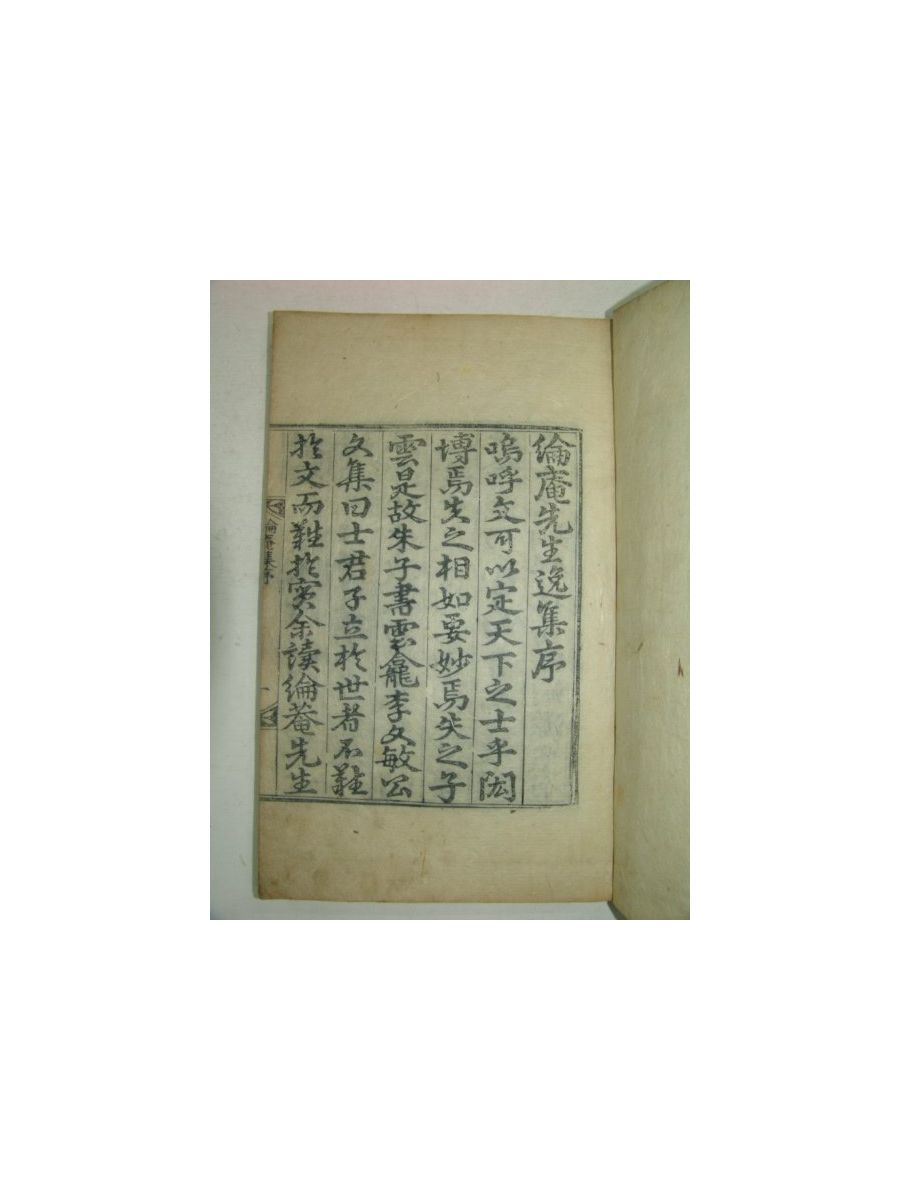 綸庵先生逸集序
嗚呼文可以定天下之士乎閎
博焉失之相如要妙焉失之子
雲是故朱子書雲龕李文敏公
文集曰士君子立於世者不難
於文而難於實余讀綸菴先生
綸菴集序
一